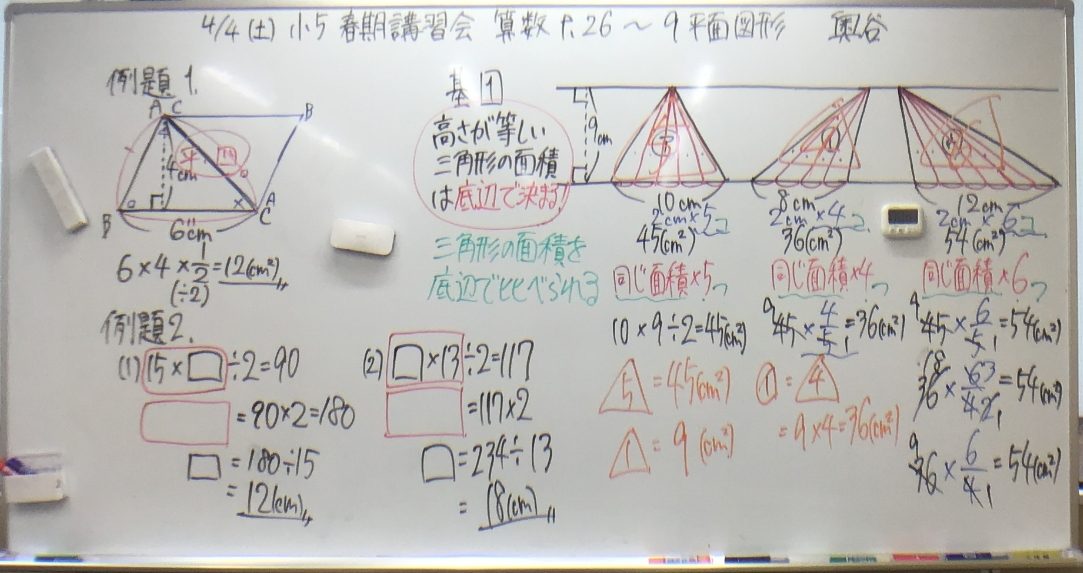 4/4(土) 小5 春期講習会 算数 P.26〜9 平面図形 奥谷
例題1.
A C
B
4cm
平 四
B
A
C
6cm
6×4×1/2=12(cm²)
(÷2)
例題2.
(1) 15×□÷2=90
□=90×2=180
□=180÷15
=12(cm)
(2) □×13÷2=117
□=117×2
□=234÷13
=18(cm)
基1
高さが等しい
三角形の面積
は底辺で決まる!
三角形の面積を
底辺で比べられる
9cm
10cm
2cm×5コ
45(cm²)
同じ面積×5つ
10×9÷2=45(cm²)
△5=45(cm²)
△1=9(cm²)
8cm
2cm×4コ
36(cm²)
同じ面積×4つ
45×4/5=36(cm²)
①=△4
=9×4=36(cm²)
12cm
2cm×6コ
54(cm²)
同じ面積×6つ
45×6/5=54(cm²)
36×6/4=54(cm²)
36×6/4=54(cm²)